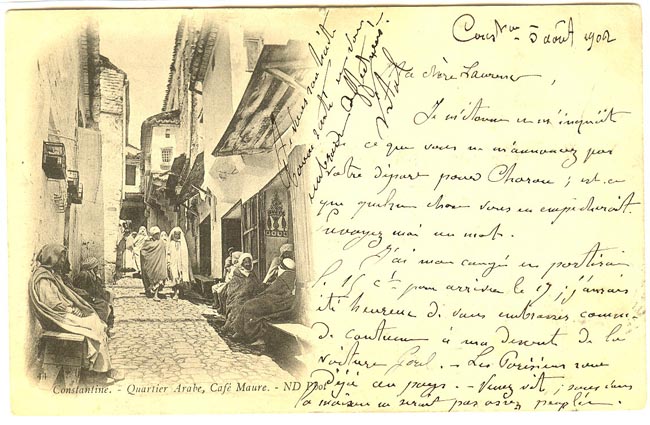 Const.ne - 5 août 1902
Ma chère Laurence,
Je m'étonne et m'inquiète
ce que vous ne m'annoncez pas
votre départ pour ; est-ce
que quelque chose vous en empêcherait.
Envoyez moi un mot.
J'ai mon congé en partirai
le 15 ct pour arriver le 17 ; j'aurais
été heureux de vous embrasser comme
de coutume à ma descente de la
voiture . - Les Parisiens sont
Déjà au pays. - Venez vite ; sans vous
la maison ne serait pas assez peuplée.
Je vous souhaite
bonne santé
embrasse
affectueusé
Vital
44
Constantine. - Quartier Arabe, Café Maure. - ND Phot